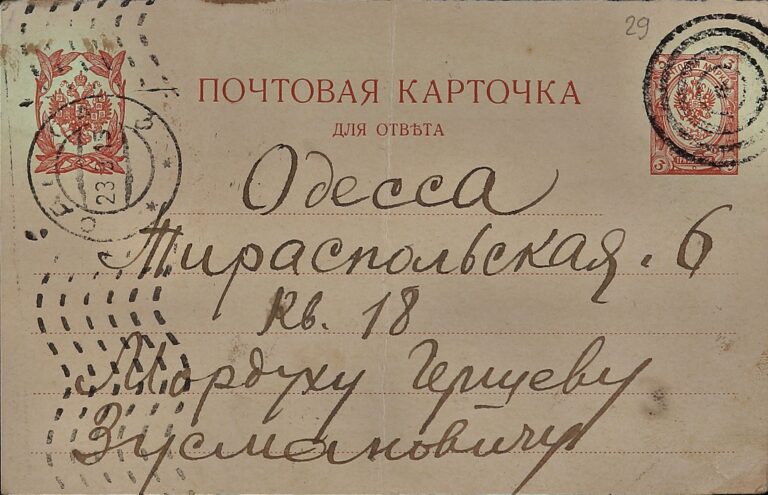 29
ПОЧТОВАЯ КАРТОЧКА
ДЛЯ ОТВѢТА
Одесса
Тираспольская. 6
Кв. 18
Мордуху Герцеву
Зусмановичу
3
3
23